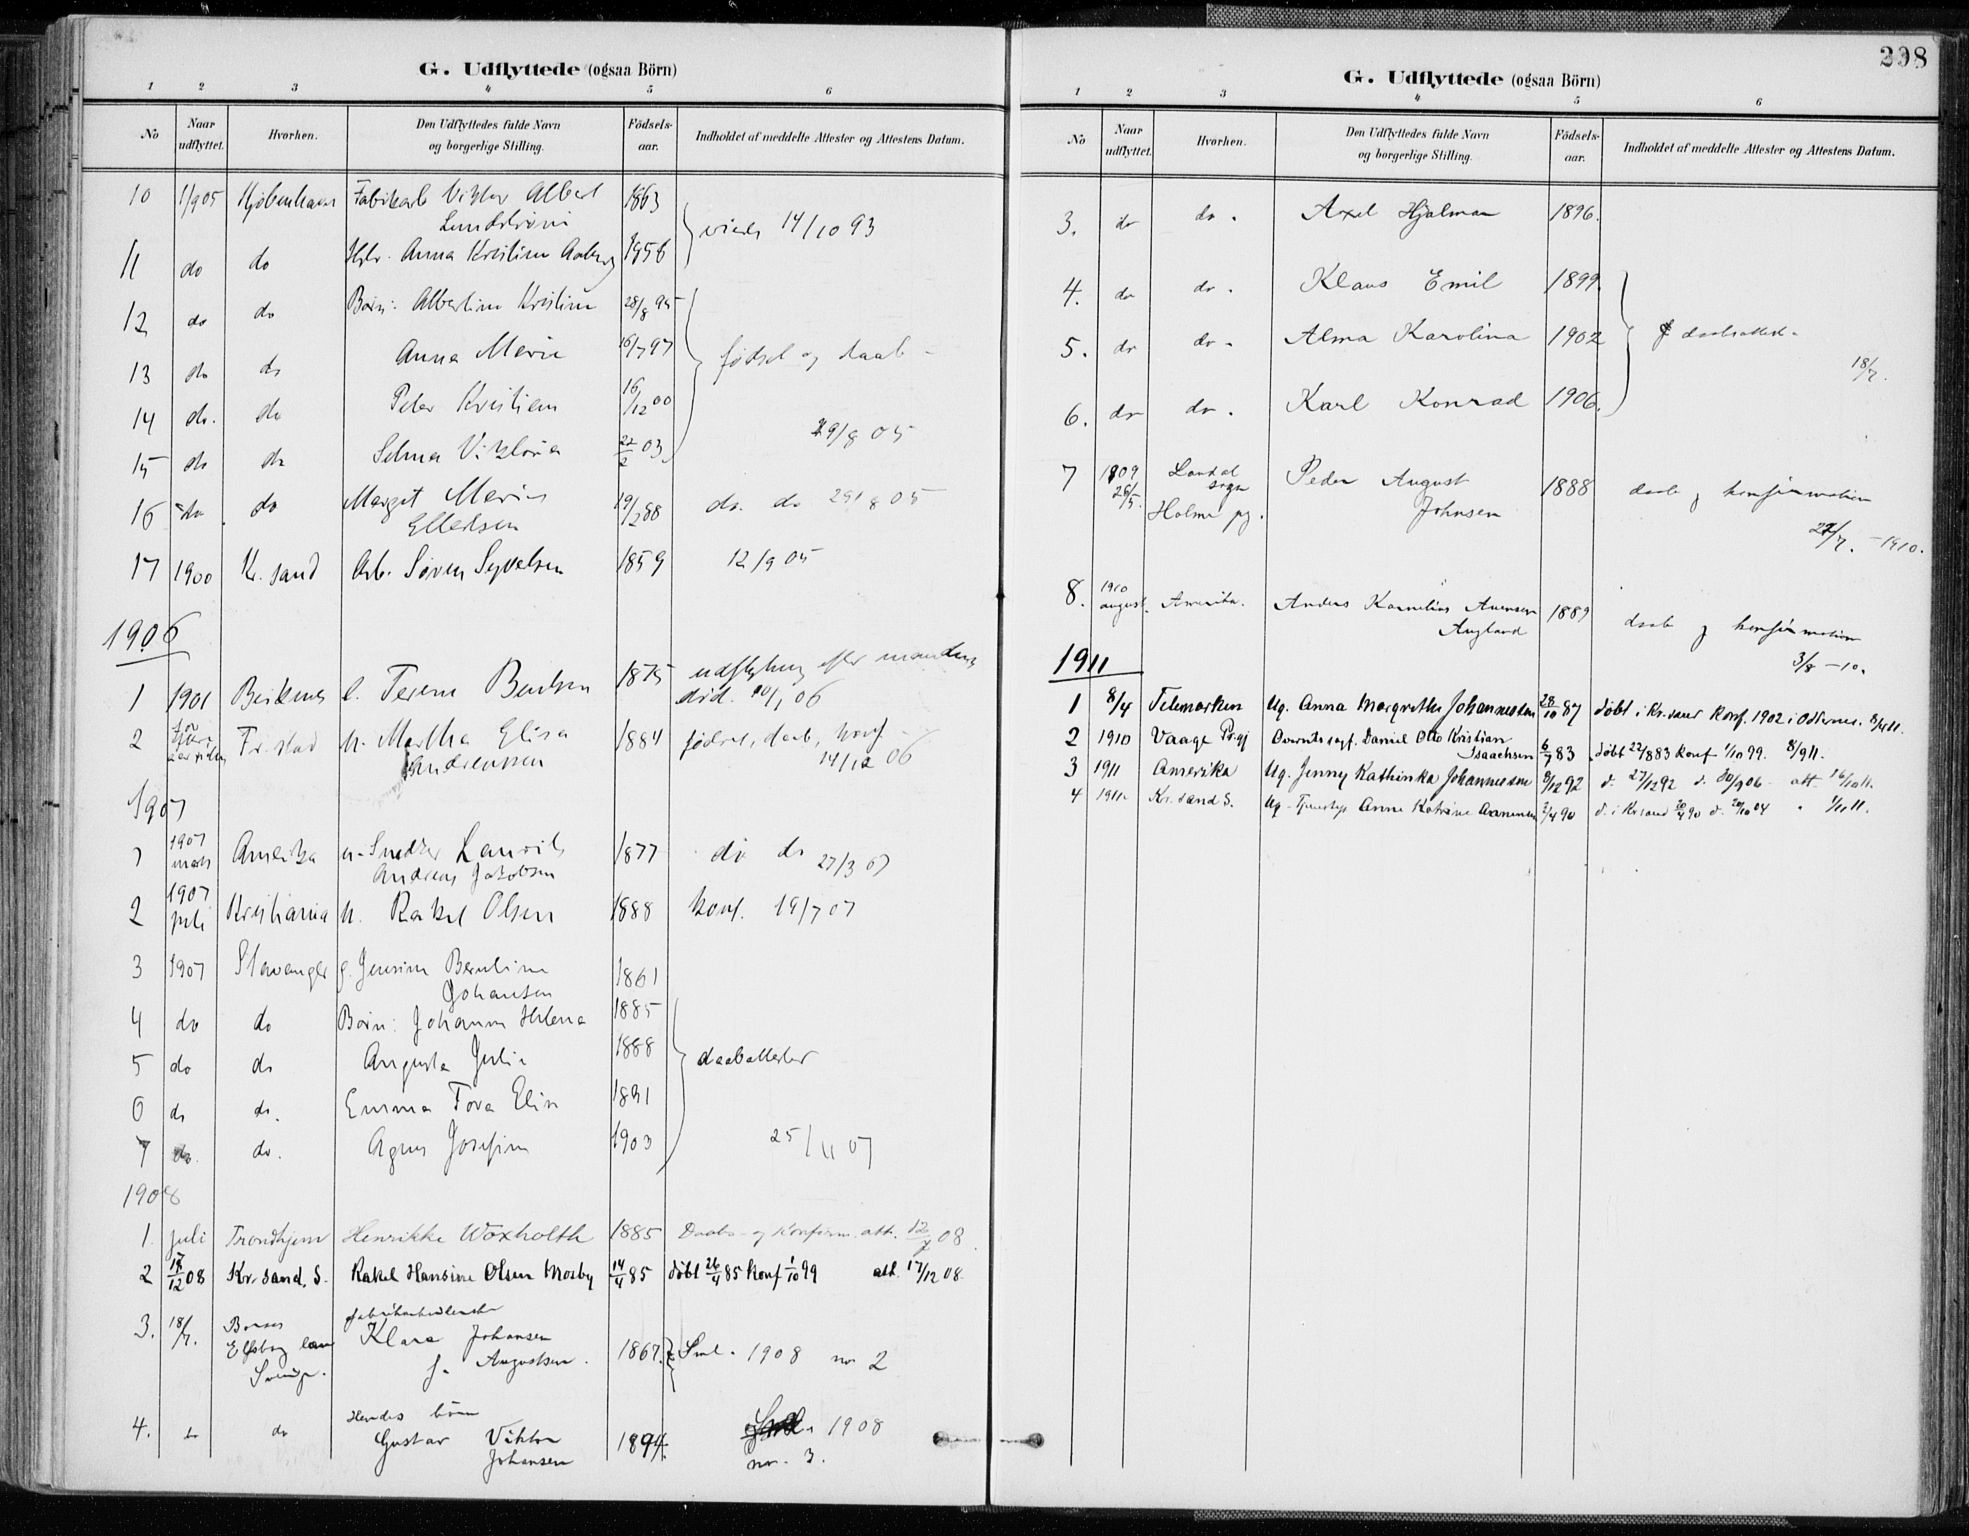 G. Udflyttede (ogsaa Börn)
1 2 3 4 5 6
No Naar udflyttet. Hvorhen. Den Udflyttedes fulde Navn og borgerlige Stilling. Födsels-aar. Indholdet af meddelte Attester og Attestens Datum.
10 1/9 05 Kjøbenhavn Fabikarb Viktor Albert 1863
Lundstrøm
viede 14/10 93
11 do do Anna Kristine 1856
12 do do Børn: Albertine Kristine 28/8 95
13 do do Anna Marie 16/7 97 fødsel og daab
14 do. do Peter Kristian 16/12 00
29/8 05
15 do do Selma Viktoria 22/2 03
16 do do Margit Marie 19/2 88 do. do 29/8 05
Ellefsen
17 1900 Kr. sand Arb. Søren Syvertsen 1859 12/9 05
1906
1 1901 Birkenes 1875 udflytning efter mandens
død. 10/1 06
2 Fr. stad u. Martha Elisa 1884 fødsel, daab, konf.
Andreassen 14/12 06
1907
1 1907 marts Amerika u. Snedker Laurits 1877 do do 27/3 07
Andreas Jakobsen
2 1907 juli Kristiania u. Rakel Olsen 1888 konf. 19/7 07
3 1907 Stavanger g. Jensine Berntine 1861
Johansen
4 do do Børn: Johanne Helena 1885
5 do do Augusta Julie 1888 daabattester
6 do do. Emma Tora Elin 1891
7 do. do. Agnes Josefine 1903 25/11 07
1908
1. juli Trondhjem Henrikke Woxholth 1885 Daabs- og Konfirm. att. 12/7 08.
2 17/12 08 Kr. sand. S. Rakel Hansine Olsen Mosby 14/4 85 døbt 26/4 85 konf 1/10 99 att. 17/12 08.
3. 18/7. Elfsborg læn fabrikarbeiderske
Klara Johansen
Sverige. f. Augustsen. 1867. Sml. 1908 no 2
4. do do Hendes børn
Gustav Viktor 1894. 1908
Johansen no. 3.
298
G. Udflyttede (ogsaa Börn)
1 2 3 4 5 6
No Naar udflyttet. Hvorhen. Den Udflyttedes fulde Navn og borgerlige Stilling. Födsels-aar. Indholdet af meddelte Attester og Attestens Datum.
3. do do. Axel Hjalmar 1896.
4. do do. Klaus Emil 1899.
5. do do. Alma Karolina 1902 daabsattest.
18/7.
6. do do. Karl Konrad 1906.
7 1909 26/5. Laudal sogn Peder August 1888 daab og konfirmation
Holme pg. Johnsen
27/7. - 1910.
8. 1910 august. Amerika. Anders Kornelius Aanensen 1889 daab og konfirmation
Augland
3/8 - 10.
1911
1 8/4 Telemarken Ug. Anna Margrethe Johannesen 28/10 87 døbt i Kr.sand konf. 1902 i Oddernes. 8/4 11.
2 1910 Vaage Pr.gj Daniel Otto Kristian
Isaachsen 6/7 83 døbt 22/7 83 konf 1/10 99. 8/9 11.
3 1911 Amerika Ug. Jenny Kathinka Johannesen 8/12 92 d. 27/12 92 30/9 06 att 16/10 11.
4 1911. Kr. sand S. Ug. Tjenestep Anne Katrine Aanensen 2/4 90 d. i Kr.sand 20/4 90 04 " 1/11 11.